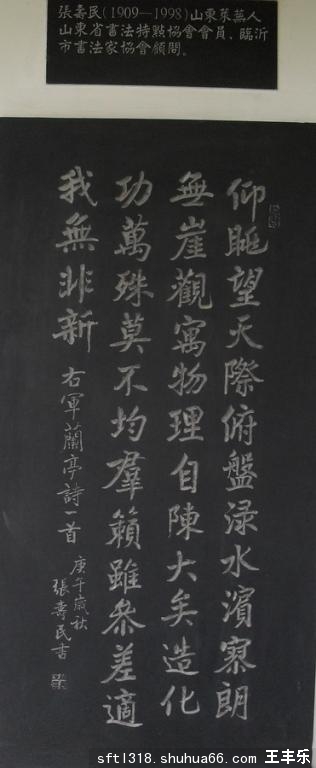 張壽民(1909—1998)山東萊蕪人
山東省書法特點協會會員、臨沂
市書法家協會顧問。
仰眺望天際俯盤渌水濱寥朗
無崖觀寓物理自陳大矣造化
功萬殊莫不均羣籟雖參差適
我無非新
右軍蘭亭詩一首
庚午歲秋
張壽民書
sftl318.shuhua66.com 王丰乐